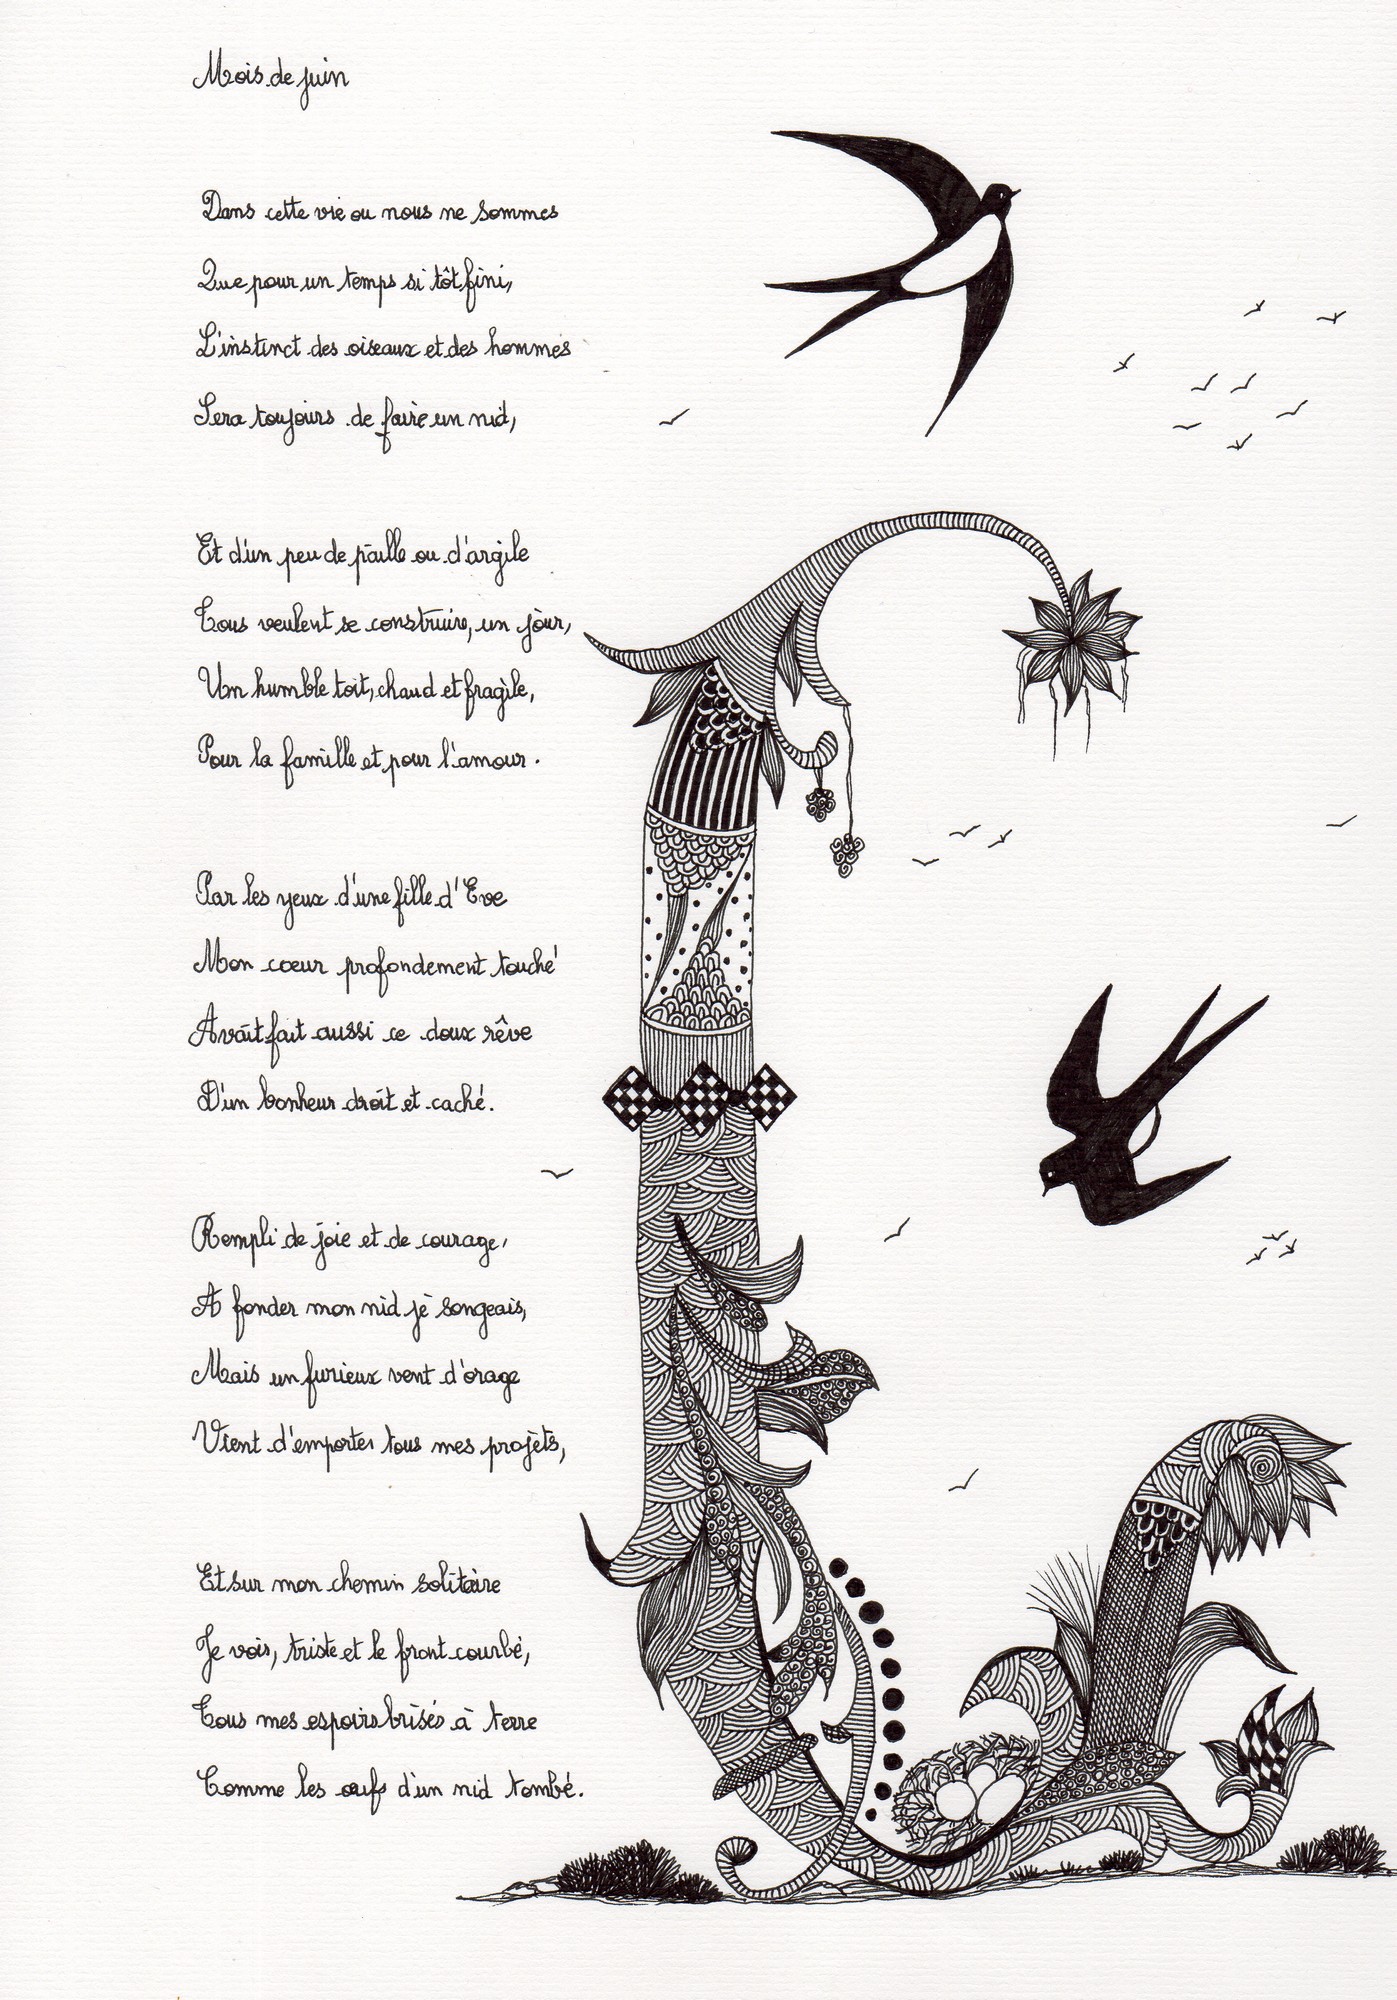 Mois de juin
Dans cette vie ou nous ne sommes
Que pour un temps si tôt fini,
L'instinct des oiseaux et des hommes
Sera toujours de faire un nid,
Et d'un peu de paille ou d'argile
Tous veulent se construire, un jour,
Um humble toit, chaud et fragile,
Pour la famille et pour l'amour.
Par les yeux d'une fille d'Eve
Mon cœur profondement touché
Avait fait aussi ce doux rêve
D'un bonheur droit et caché.
Rempli de joie et de courage,
A fonder mon nid je songeais,
Mais un furieux vent d'orage
Vient d'emporter tous mes projets,
Et sur mon chemin solitaire
Je vois, triste et le front courbé,
Tous mes espoirs brisés à terre
Comme les œufs d'un nid tombé.